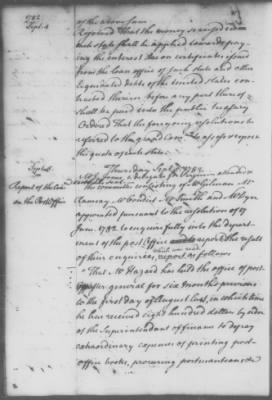 1782
Sept. 4
of the above sum
Resolved That the money so raised in
each state shall be applied towards pay-
ing the interest due on certificates issued
from the loan office of such state and other
liquidated debts of the United States con-
tracted therein before any part thereof
shall be paid into the public treasury
Ordered That the foregoing resolutions be
referred to the grand Comee. to assess & report
the quota of each state.
Thursday Sept. 5 1782.
Sept. 5.
Mr Jones a delegate for Virginia attended &
Report of the Com
on the Post Office
The committee consisting of Mr Gilman Mr
Ramsay Mr Condict Mr Smith and Mr Dyer
appointed pursuant to the resolution of 17
June. 1782 to enquire fully into the depart-
ment of the post Office and to report the result
which was read
of their enquiries, report as follows
That Mr Hazard has held the office of post-
master general for six months previous
to the first day of August last, in which time
he has received eight hundred dollars by order
of the Superintendant of finance to defray
extraordinary expences of printing post-
office books, procuring portmanteaus &c